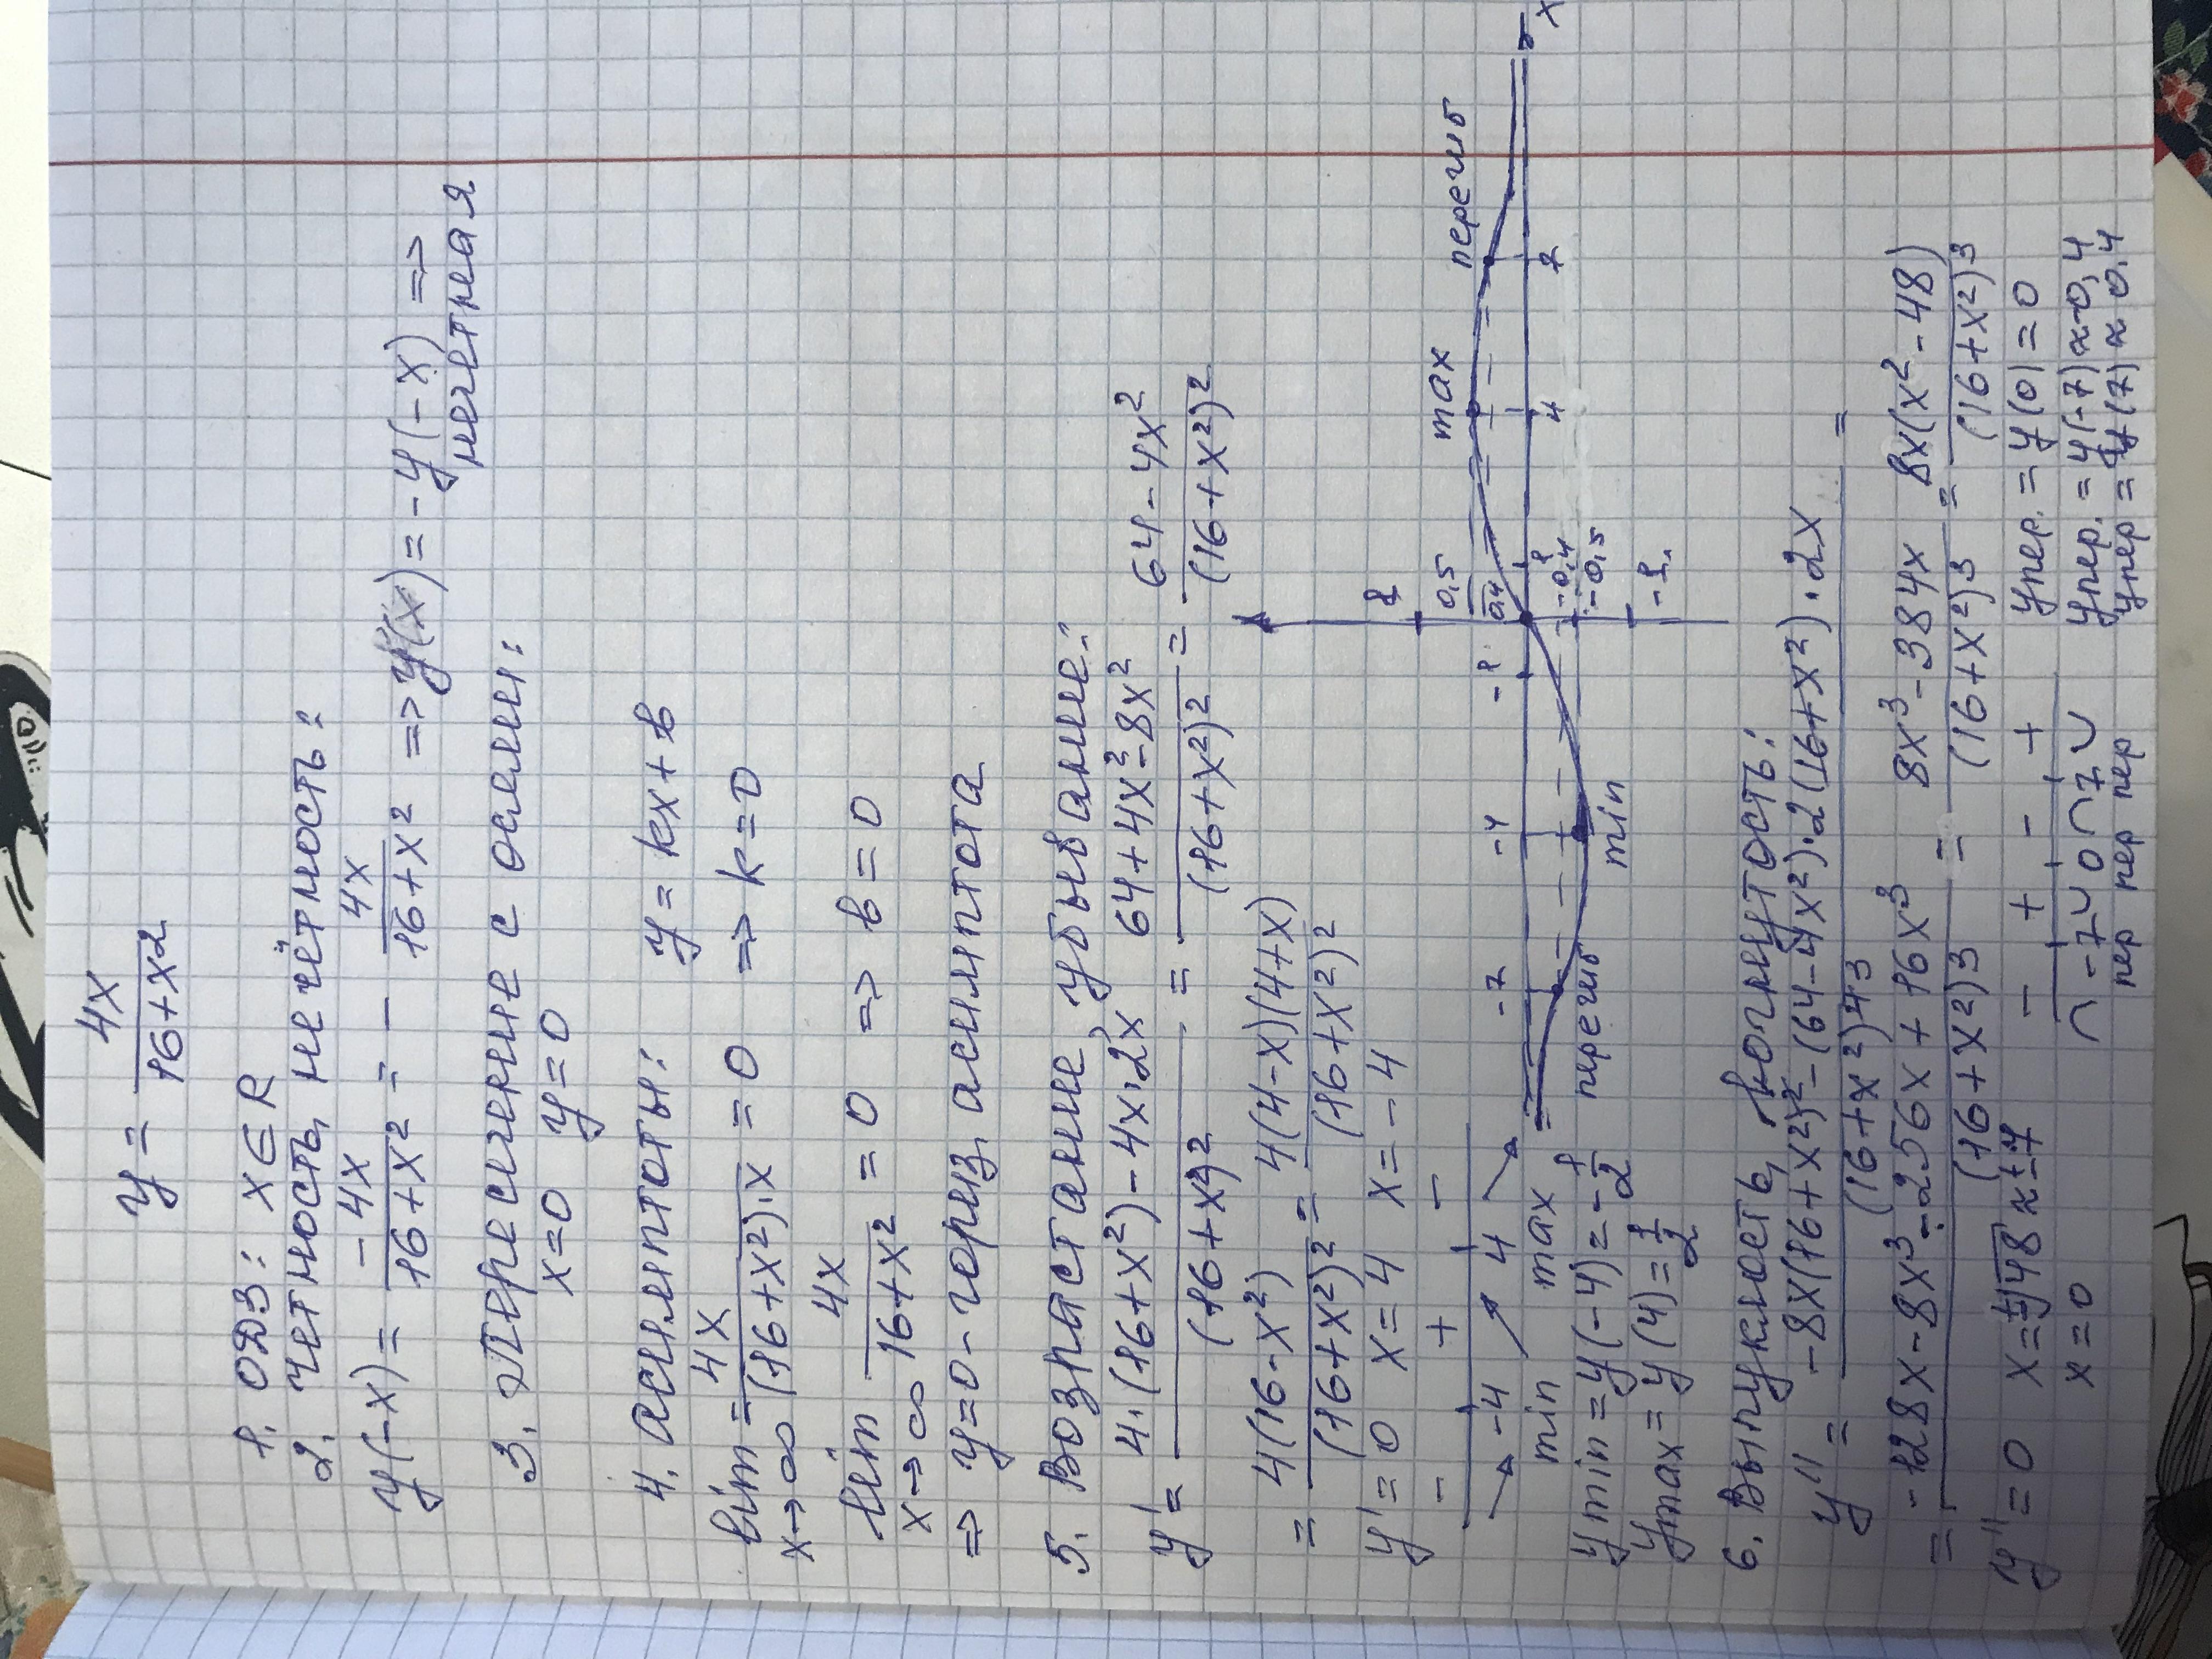 y = 4x/(16+x²)
1. ОДЗ: x ∈ R
2. четность, нечётность:
y(-x) = -4x/(16+x²) = - 4x/(16+x²) => y(x) = -y(-x) =>
нечетная
3. Пересечение с осями:
x=0 y=0
4. асимптоты: y = kx + b
lim x→∞ = 4x/((16+x²)·x) = 0 => k=0
lim x→∞ 4x/(16+x²) = 0 => b = 0
=> y=0 - гориз. асимптота
5. Возрастание, убывание:
y' = (4·(16+x²) - 4x·2x)/(16+x²)² = (64+4x²-8x²)/(16+x²)² = (64-4x²)/(16+x²)²
= 4(16-x²)/(16+x²)² = 4(4-x)(4+x)/(16+x²)²
y' = 0 x = 4 x = -4
- + -
-4 4
min max
y min = y(-4) = -1/2
y max = y(4) = 1/2
x
1
0,5
0,4
-7 -4 -1 1 4 7
-0,4
-0,5
-1
max
перегиб
min
перегиб
6. Выпуклость, вогнутость:
y'' = (-8x(16+x²)² - (64-4x²)·2(16+x²)·2x)/(16+x²)⁴³ =
= (-128x - 8x³ - 256x + 16x³)/(16+x²)³ = (8x³-384x)/(16+x²)³ = 8x(x²-48)/(16+x²)³
y'' = 0 x = ±√48 ≈ ±7
x = 0
- + - +
∩ -7 ∪ 0 ∩ 7 ∪
пер пер пер
y пер. = y(0) = 0
y пер. = y(-7) ≈ -0,4
y пер = y(7) ≈ 0,4